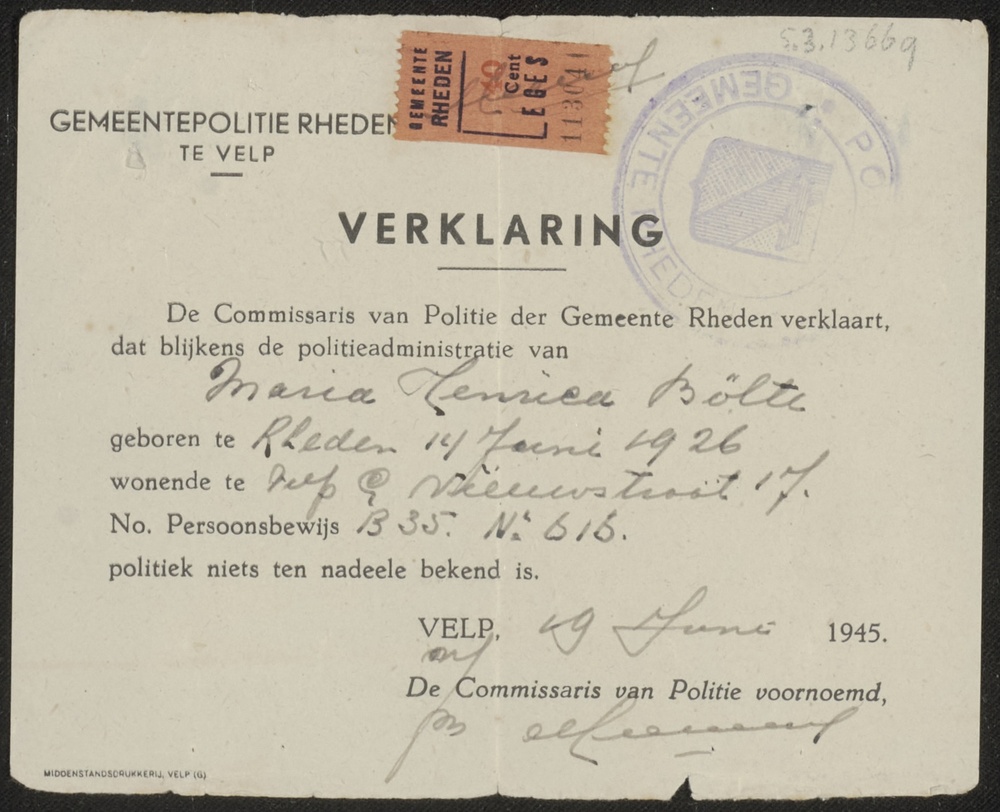 5.3.13669
GEMEENTE
RHEDEN
40
Cent
LEGES
113041
GEMEENTEPOLITIE RHEDEN
TE VELP
GEMEENTE RHEDEN
PO
VERKLARING
De Commissaris van Politie der Gemeente Rheden verklaart,
dat blijkens de politieadministratie van
Maria Henrica Bölte
geboren te Rheden 14 Juni 1926
wonende te Velp G, Nieuwstraat 17.
No. Persoonsbewijs B 35. No. 616.
politiek niets ten nadeele bekend is.
VELP, 19 Juni 1945.
De Commissaris van Politie voornoemd,
MIDDENSTANDSDRUKKERIJ, VELP (G)